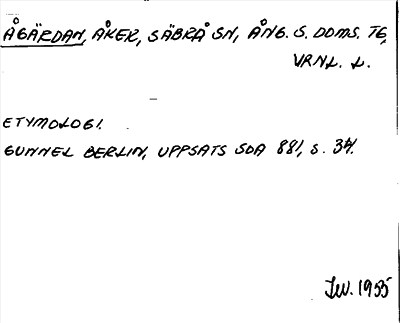 ÅGÄRDAN, ÅKER, SÄBRÅ SN, ÅNG. S. DOMS. TG,
VRNL. L.
ETYMOLOGI.
GUNNEL BERLIN, UPPSATS SOA 881, S. 34.
1955